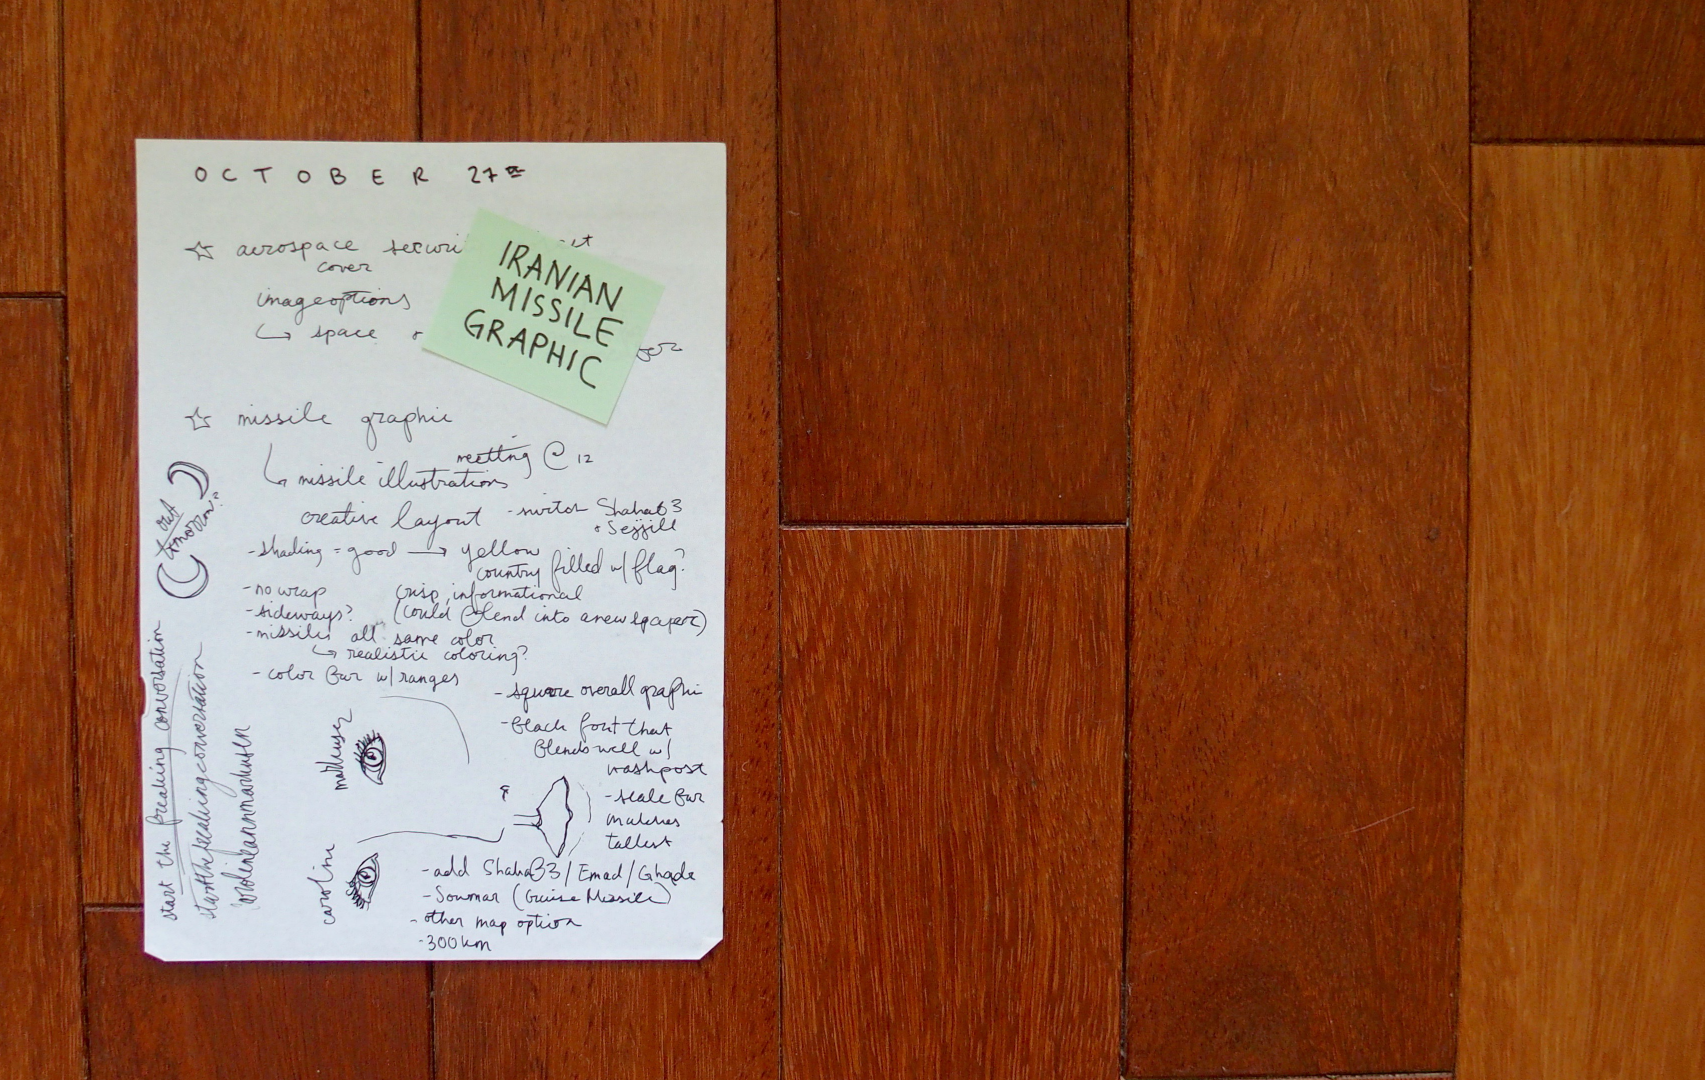 OCTOBER 27th
☆ aerospace securi
cover
image options
↳ space +
IRANIAN
MISSILE
GRAPHIC
☆ missile graphic
meeting @ 12
↳ missile illustrations
creative layout - Shahab 3
+ Sejjill
- shading = good → yellow
country filled w/ flag?
- no wrap crisp, informational
- sideways? (could blend into a newspaper)
- missiles all same color
↳ realistic coloring?
- color bar w/ ranges
- square overall graphic
- black font that
blends well w/
washpost
- scale bar
matches
tallest
- add Shahab3/Emad/Ghadr
- Soumar (Cruise Missile)
- other map option
- 300km
caroline
start the freaking conversation
startthefreakingconversation